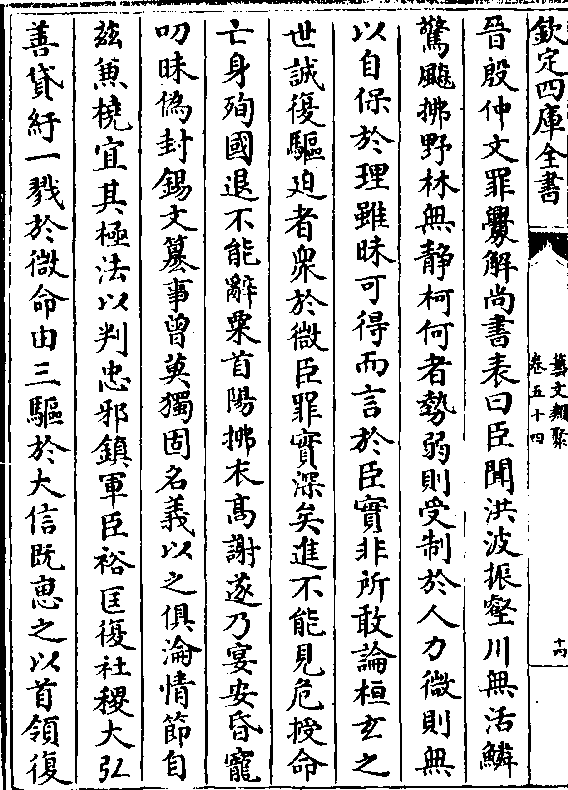 欽定四庫全書
藝文類聚
卷五十四
十四
晉殷仲文罪舋解尚書表曰臣聞洪波振壑川無活鱗
驚飈拂野林無静柯何者勢弱則受制於人力微則無
以自保於理雖昧可得而言於臣實非所敢論桓玄之
世誠復驅迫者衆於微臣罪實深矣進不能見危授命
亡身殉國退不能辭粟首陽拂衣髙謝遂乃宴安昏寵
叨昧偽封錫文簒事曾莫獨固名義以之俱淪情節自
兹兼橈宜其極法以判忠邪鎮軍臣裕匡復社稷大弘
善貸紓一戮於微命由三驅於大信既恵之以首領復